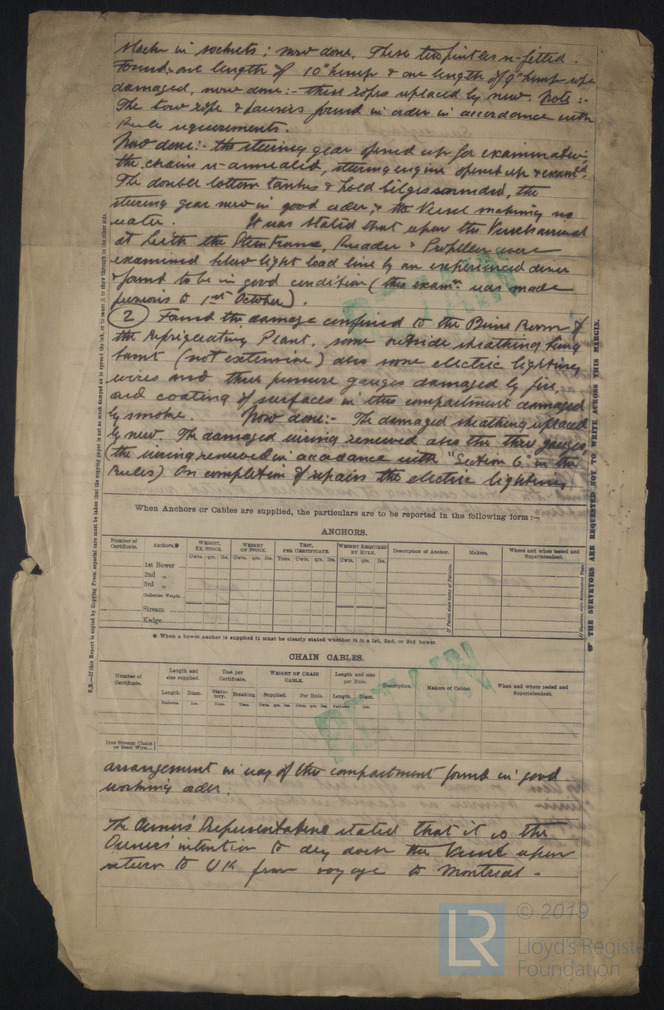 slack in sockets; now done. These two pintles re-fitted.
Found:- one length of 10" hemp & one length of 9" hemp rope
damaged, now done:- these ropes replaced by new. Note:-
The tow rope & hawsers found in order in accordance with
Rule requirements.
Now done:- the steering gear opened up for examination,
the chains re-annealed, steering engine opened up & examd.
The double bottom tanks & hold bilges sounded, the
steering gear now in good order, & the Vessel making no
water. It was stated that upon the Vessels arrival
at Leith the Stern frame, Rudder & Propeller were
examined below light load line by an experienced diver
& found to be in good condition (this examn. was made
previous to 1st October).
(2) Found the damage confined to the Brine Room of
the Refrigerating Plant, some outside sheathing being
burnt (not extensive) also some electric lighting
wires and three pressure gauges damaged by fire,
and coating of surfaces in this compartment damaged
by smoke. Now done:- The damaged sheathing replaced
by new. The damaged wiring renewed also the three gauges,
(the wiring renewed in accordance with "Section 6" in the
Rules) On completion of repairs the electric lighting
When Anchors or Cables are supplied, the particulars are to be reported in the following form:—
ANCHORS.
Number of Certificate. Anchors.* WEIGHT, EX. STOCK. WEIGHT OF STOCK. TEST, PER CERTIFICATE. WEIGHT REQUIRED BY RULE. Description of Anchor. Makers. Where and when tested and Superintendent.
Cwts. qrs. lbs. Cwts. qrs. lbs. Tons. Cwts. qrs. lbs. Cwts. qrs. lbs.
1st Bower
2nd „
3rd „
Collective Weight
Stream
Kedge
* When a bower anchor is supplied it must be clearly stated whether it is a 1st, 2nd, or 3rd bower.
CHAIN CABLES.
Number of Certificate. Length and size supplied. Test per Certificate. WEIGHT OF CHAIN CABLE. Length and size per Rule. Description. Makers of Cables. Where and when tested and Superintendent.
Length. Diam. Statutory. Breaking. Supplied. Per Rule. Length. Diam.
Fathoms. Ins. Tons. Tons. Cwts. qrs. lbs. Cwts. qrs. lbs. Fathoms. Ins.
Iron Stream Chain or Steel Wire
arrangement in way of this compartment found in good
working order.
The Owners' Representative stated that it is the
Owner's intention to dry dock the Vessel upon
return to UK from voyage to Montreal.
THE SURVEYORS ARE REQUESTED NOT TO WRITE ACROSS THIS MARGIN.
LR
© 2019
Lloyd's Register
Foundation